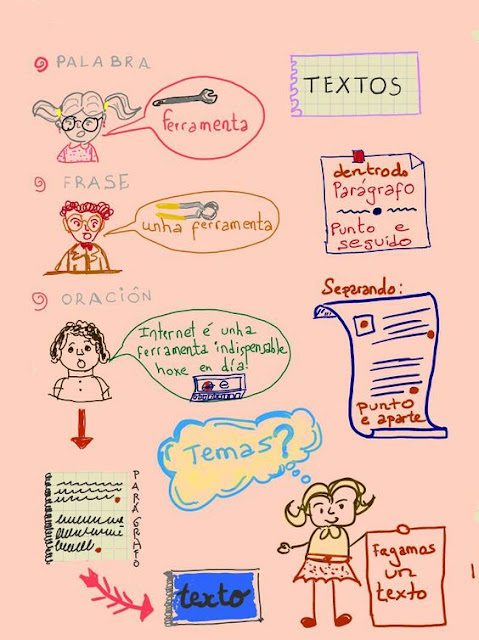 PALABRA
ferramenta
FRASE
unha ferramenta
ORACIÓN
Internet é unha
ferramenta indispensable
hoxe en día!
e
PARÁGRAFO
texto
TEXTOS
dentro do
Parágrafo
Punto e
seguido
Separando:
punto
e aparte
Temas?
Fagamos
un
texto